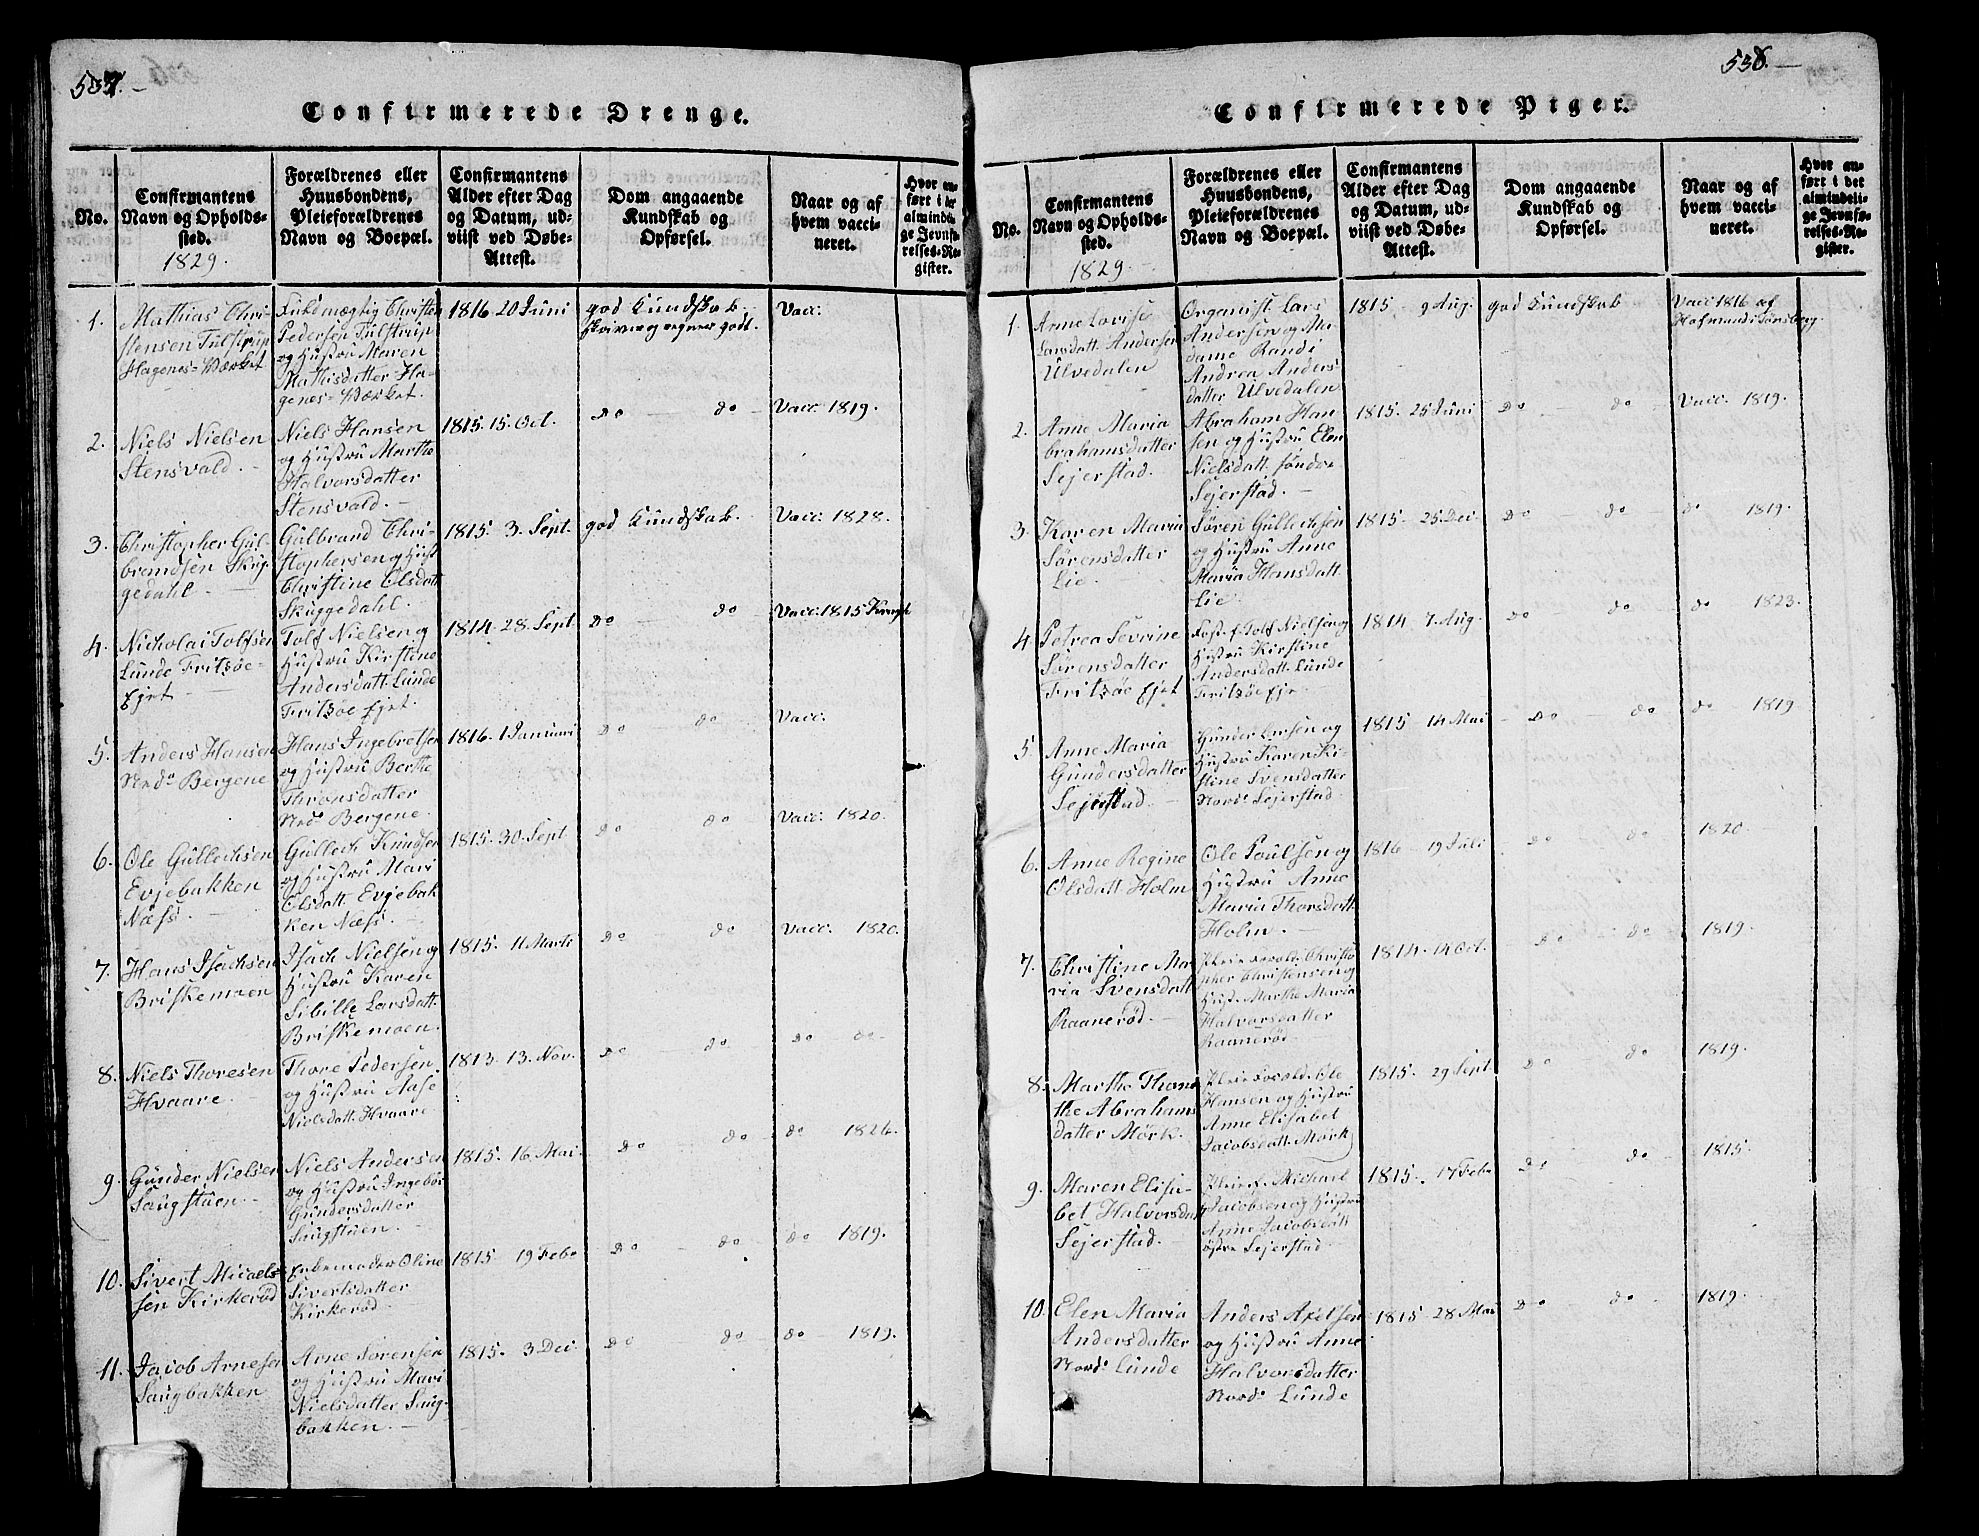 537.
Confirmerede Drenge.
No.
Confirmantens
Navn og Opholds-
sted.
1829.
Forældrenes eller
Huusbondens,
Pleieforældrenes
Navn og Boepæl.
Confirmantens
Alder efter Dag
og Datum, ud-
viist ved Døbe-
Attest.
Dom angaaende
Kundskab og
Opførsel.
Naar og af
hvem vacci-
neret.
Hvor an-
ført i det
almindeli-
ge Jevnfø-
relses-Re-
gister.
1.
Mathias Chri-
stensen Tulstrup
Hagenes-Værket
Fuldmægtig Christen
Pedersen Tulstrup
og Hustru Maren
Mathisdatter Ha-
genes-Værket.
1816 20 Juni
god Kundskab.
skriver og regner godt.
Vacc:
2.
Niels Nielsen
Stensvald.
Niels Hansen
og Hustru Marthe
Halvorsdatter
Stensvald.
1815. 15. Oct.
do do
Vacc: 1819.
3.
Christopher Gul-
brandsen Skug-
gedahl.
Gulbrand Chri-
stophersen og Hust
Christine Olsdatt
Skuggedahl.
1815. 3. Sept.
god Kundskab.
Vacc: 1828.
4.
Nicholai Tolfsen
Lunde Fritzöe-
Ejet
Tolf Nielsen og
Hustru Kirstine
Andersdatt. Lunde
Fritzöe Ejet.
1814. 28. Sept
do do
Vacc: 1815
5.
Anders Hansen
Nord. Bergene
Hans Ingebretsen
og Hustru Berthe
Thronsdatter
Nord. Bergene.
1816. 1 Januari
do do
Vacc:
6.
Ole Gullechsen
Evjebakken
Næss.
Gullech Knudsen
og Hustru Mari
Olsdatt. Evjebak
ken Næss.
1815. 30. Sept
do do
Vacc: 1820.
7.
Hans Isachsen
Briskemoen
Isach Nielsen og
Hustru Karen
Sibille Larsdatt.
Briskemoen.
1815. 11 Marts
do do
Vacc: 1820.
8.
Niels Thoresen
Hvaare.
Thore Pedersen
og Hustru Aase
Nielsdatt. Hvaare
1813. 13. Nov.
do do
do do
9.
Gunder Nielsen
Saugstuen.
Niels Andersen
og Hustru Ingebor
Gundersdatter
Saugstuen.
1815. 16. Mai
do do
do 1826.
10.
Sivert Micaels
sen Kirkeröd
Oline
Sivertsdatter
Kirkeröd.
1815 19 Feb.
do do
do 1819.
11.
Jacob Arnesen
Saugbakken
Arne Sörensen
og Hustru Mari
Nielsdatter Saug-
bakken.
1815. 3 Dec.
do do
do 1819.
538.
Confirmerede Piger.
No.
Confirmantens
Navn og Opholds-
sted.
1829.
Forældrenes eller
Huusbondens,
Pleieforældrenes
Navn og Boepæl.
Confirmantens
Alder efter Dag
og Datum, ud-
viist ved Døbe-
Attest.
Dom angaaende
Kundskab og
Opførsel.
Naar og af
hvem vacci-
neret.
Hvor an-
ført i det
almindeli-
ge Jevnfø-
relses-Re-
gister.
1.
Anne Lovise
Larsdatt. Andersen
Ulvedalen
Organist Lars
Andersen og Ma-
dame Randi
Andrea Anders-
datter Ulvedalen
1815 9 Aug.
god Kundskab
Vacc 1816 af
Hofmand i Tönsberg.
2.
Anne Maria
brahamsdatter
Sejerstad.
Abraham Han
sen og Hustru Elen
Nielsdatt. söndre
Sejerstad.
1815. 25 Juni
do do
Vacc. 1819.
3.
Karen Maria
Sörensdatter
Lie.
Sören Gullechsen
og Hustru Anne
Maria Hansdatt.
Lie.
1815. 25. Dec.
do do
do 1819.
4
Petrea Sevrine
Sörensdatter
Fritzöe Ejet
Fost. f. Tolf Nielsen og
Hustru Kirstine
Andersdatt. Lunde
Fritzöe Eje
1814 7 Aug.
do do
do 1823.
5
Anne Maria
Gundersdatter
Sejerstad.
Gunder Larsen og
Hustru Karen Ki-
stine Svensdatter
Nord. Sejerstad.
1815 14 Mai
do do
do 1819
6.
Anne Regine
Olsdatt. Holm
Ole Poulsen og
Hustru Anne
Maria Thorsdatt.
Holm.
1816 19 Juli
do do
1820.
7.
Christine Ma-
ria Svensdatt
Raaneröd.
Christo
pher Christensen og
Hust. Marthe Maria
Halvorsdatter
Raaneröd
1814. 14 Oct.
do do
1819.
8.
Marthe Thoma
the Abrahams
datter Mörk.
Pleieforæld. Ole
Hansen og Hustru
Anne Elisabet
Jacobsdatt. Mörk
1815. 29 Sept
do do
1819.
9.
Maren Elisa-
bet Halvorsda
Sejerstad.
Pleief. Michael
Jacobsen og Hustru
Anne Jacobsdatt
östre Sejerstad
1815. 17 Feb.
do do
1815.
10.
Elen Maria
Andersdatter
Nord. Lunde
Anders Axelsen
og Hustru Anne
Halvorsdatter
Nord. Lunde
1815 28 Mai
do do
1819.